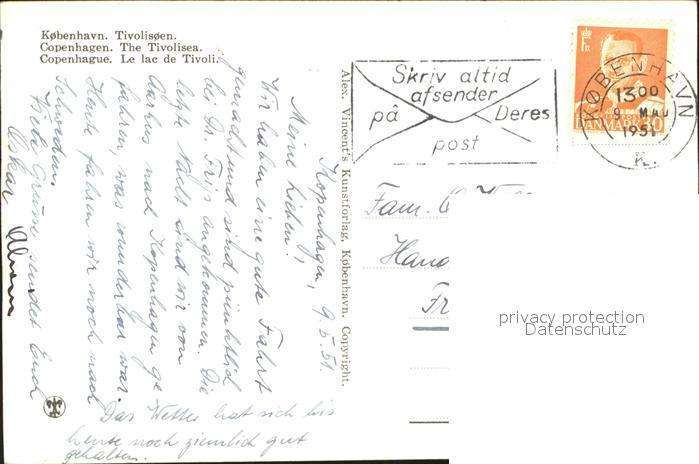 København. Tivolisøen.
Copenhagen. The Tivolisea.
Copenhague. Le lac de Tivoli.
Alex. Vincent's Kunstforlag, København. Copyright.
Skriv altid
afsender
på Deres
post
KØBENHAVN
13 00
9 MAJ
1951
K.
DANMARK 30
Kopenhagen, 9.5.51.
Meine Lieben!
Wir haben eine gute Fahrt
gemacht und sind pünktlich
bei Frijs angekommen. Die
letzte Nacht sind wir von
Aarhus nach Kopenhagen ge
fahren, was wunderbar war.
Heute fahren wir noch nach
Schweden.
Viele Grüsse sendet Euch
Oskar
Das Wetter hat sich bis
heute noch ziemlich gut
gehalten.
Fam.
privacy protection
Datenschutz